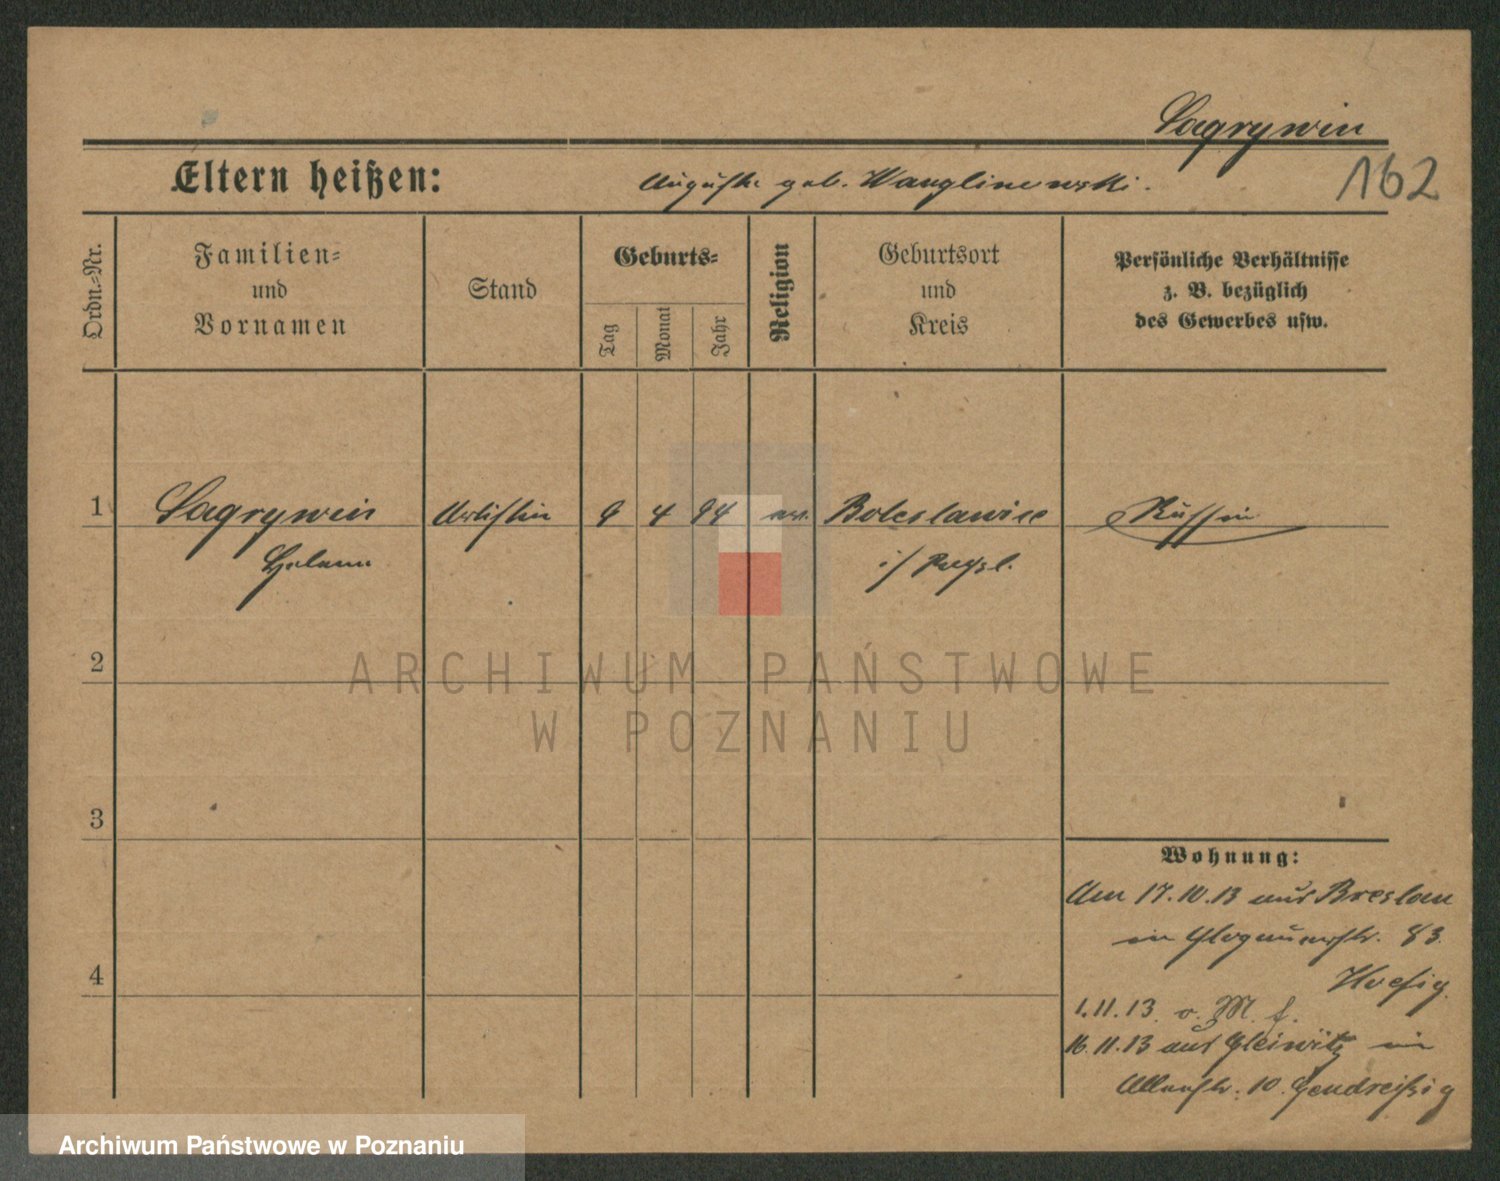 Sagrywin
162
Eltern heißen:
geb. Wanglinowski.
Ordn.-Nr.
Familien-
und
Vornamen
Stand
Geburts-
Tag
Monat
Jahr
Religion
Geburtsort
und
Kreis
Persönliche Verhältnisse
z. B. bezüglich
des Gewerbes usw.
1
Sagrywin
Artistin
9
4
94
ev.
Boleslawice
Russin
Helene
i/
2
ARCHIWUM PAŃSTWOWE
W POZNANIU
3
Wohnung:
Am 17.10.13 aus Breslau
in Glogauerstr. 83.
Hoesig.
4
1.11.13. v. M. f.
16.11.13 aus Gleiwitz in
10. Gendreißig
Archiwum Państwowe w Poznaniu